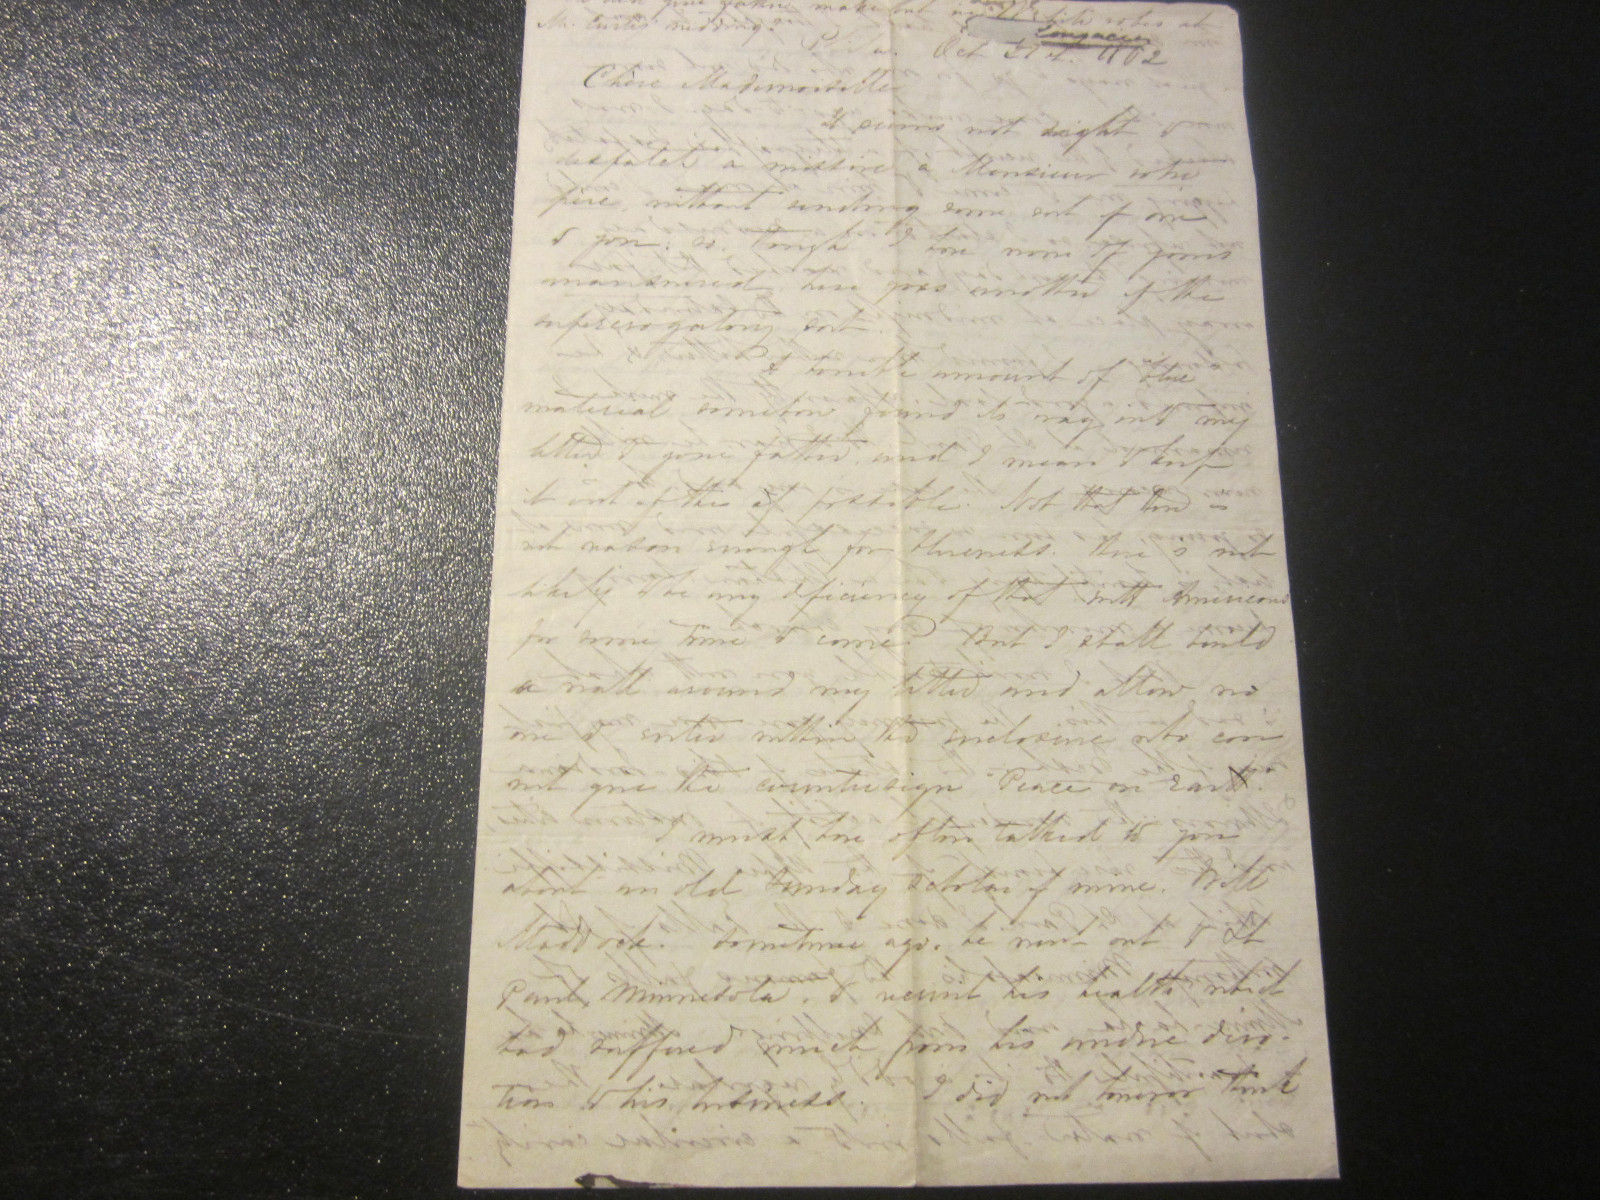 Mr. Curtis wedding.
Longacre
Phila. Oct 31st. 1862
Chère Mademoiselle
It seems not right to
despatch a missive a Monsieur votre
père, without sending some sort of one
to you. So, though I have none of yours
unanswered, here goes another of the
supererogatory sort.
A terrible amount of blue
material somehow found its way into my
letter to your father, and I mean to keep
it out of this if possible. Not that there is
not reason enough for blueness. There is not
likely to be any deficiency of that with Americans
for some time to come. But I shall build
a wall around my letter and allow no
one to enter within the enclosure who can
not give the countersign "Peace on Earth."
I must have often talked to you
about an old Sunday scholar of mine. Will
Maddock. Sometime ago, he went out to St
Paul, Minnesota, to recruit his health which
had suffered much from his undue devo-
tion to his business. I did not however think